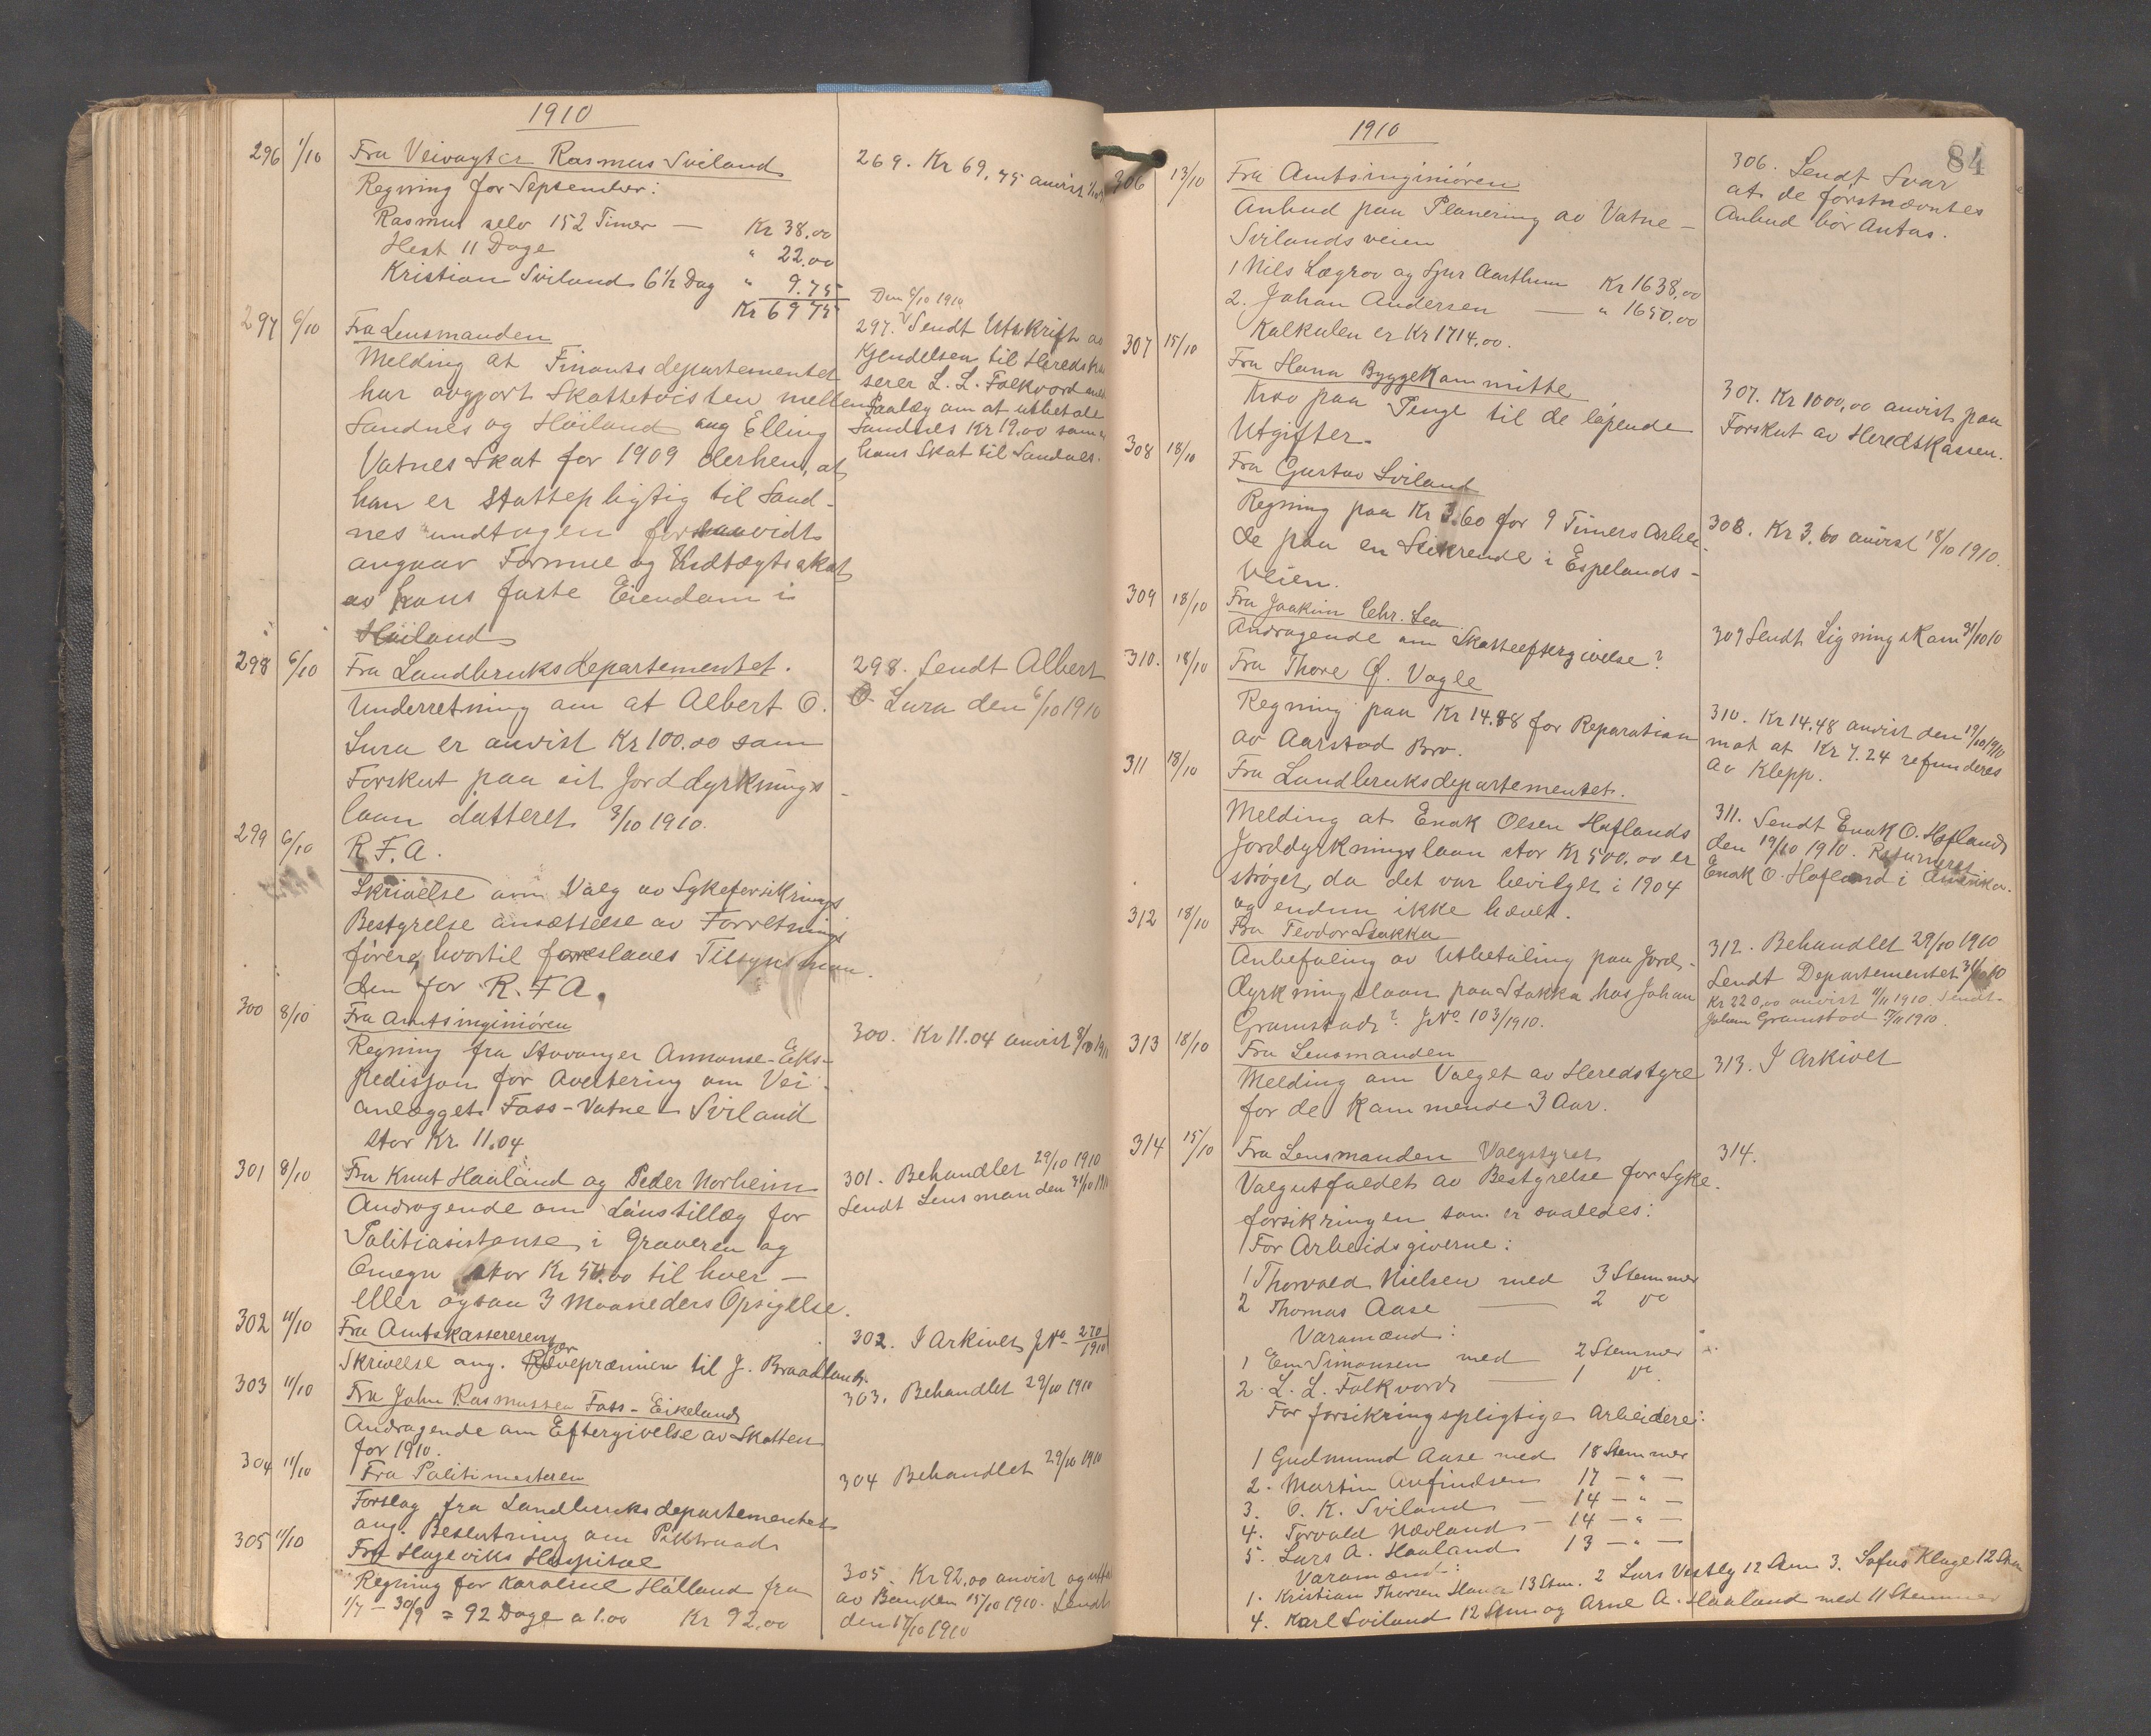 1910
296 1/10 Fra Veivogter Rasmus Sviland
Regning for September:
Rasmus selv 152 Timer — Kr 38.00
Hest 11 Dage " 22.00
Kristian Sviland 6½ Dag " 9.75
Kr 69 75
269. Kr 69.75 anvist
297 6/10 Fra Lensmanden
Melding at Finantsdepartementet
har avgjort Skattetvisten mellem
Sandnes og Höiland ang Elling
Vatnes Skat for 1909 derhen, at
han er skattepligtig til Sand-
nes undtagen forsaavidt
angaar Formue og Indtægtsskat
av hans faste Eiendom i
Höiland
Den 8/10 1910
297. Sendt Utskrift av
Kjendelsen til Heredska
serer L. L. Folkvord med
Paalæg om at utbetale
Sandnes Kr 19.00 som
hans Skat til Sandnes.
298 6/10 Fra Landbruksdepartementet.
Underretning om at Albert O.
Lura er anvist Kr 100.00 som
Forskut paa sit Jorddyrknings-
laan datteret 3/10 1910.
298. Sendt Albert
O Lura den 6/10 1910
299 6/10 R.F.A.
Skrivelse om Valg av Sykeforsikrings
Bestyrelse ansættelse av Forretnings
förere, hvortil foreslaaes Tilsynsman-
den for R.F.A.
300 8/10 Fra Amtsinginiören
Regning fra Stavanger Annonse-Eks-
pedisjon for Avertering om Vei-
anlægget Foss-Vatne - Sviland
stor Kr. 11.04
300. Kr 11.04 anvist 8/10 1910
301 8/10 Fra Knut Haaland og Peder Norheim
Andragende om Lönstillæg for
Politiasistanse i Graveren og
Omegn stor Kr 50.00 til hver —
eller ogsaa 3 Maaneders Opsigelse.
301. Behandlet 29/10 1910
Sendt Lensmanden 31/10 1910
302 11/10 Fra Amtskassereren
Skrivelse ang. Rævepræmien for til J. Braadland.
302. I Arkivet J No 270/1910
303 11/10 Fra John Rasmussen Foss-Eikeland
Andragende om Eftergivelse av Skatten
for 1910.
303. Behandlet 29/10 1910
304 11/10 Fra Politimesteren
Forslag fra Landbruksdepartementet
ang. Beslutning om Piktraad
304 Behandlet 29/10 1910
305 11/10 Fra Hageviks Hospital
Regning for Karoline Hölland fra
1/7 - 30/9 = 92 Dage a 1.00 Kr 92.00
305. Kr 92.00 anvist og
av Banken 15/10 1910. Sendt
den 17/10 1910
84
1910
306 13/10 Fra Amtsinginiören
Anbud paa Planering av Vatne-
Svilandsveien
1 Nils Lægrov og Sjur Aarthun Kr 1638,00
2. Johan Andersen — " 1650.00
Kalkulen er Kr 1714.00.
306. Sendt Svar
at de förstnævntes
Anbud bör Antas.
307 15/10 Fra Hana Byggekommitte
Krav paa Penge til de löpende
Utgifter.
307. Kr 1000,00 anvist paa
Forskut av Heredskassen.
308 18/10 Fra Gustav Sviland
Regning paa Kr 3.60 for 9 Timers Arbei-
de paa en Stikrende i Espelands-
veien.
308. Kr 3.60 anvist 18/10 1910.
309 18/10 Fra Joakim Chr. Lea
Andragende om Skatteeftergivelse?
309 Sendt Ligningskom 31/10 10
310. 18/10 Fra Thore Ø. Vagle
Regning paa Kr 14.48 for Reparation
av Aarstad Bro.
310. Kr 14.48 anvist den 19/10 1910
mot at Kr 7.24 refunderes
av Klepp.
311 18/10 Fra Landbruksdepartementet.
Melding at Enok Olsen Höflands
Jorddyrkningslaan stor Kr 500.00 er
ströget, da det var bevilget i 1904
og endnu ikke hævet.
311. Sendt Enok O. Höfland
den 19/10 1910. Returneret
Enok O. Höfland i Amerika.
312 18/10 Fra Teodor Stokka
Anbefaling av Utbetaling paa Jord-
dyrkningslaan paa Stokka hos Johan
Gramstad? JNo 103/1910.
312. Behandlet 29/10 1910
Sendt Departementet 31/10 10
Kr 220,00 anvist 11/11 1910. Sendt
Johan Gramstad 11/11 1910.
313 18/10 Fra Lensmanden
Melding om Valget av Heredstyre
for de Kommende 3 Aar.
313. I Arkivet
314 15/10 Fra Lensmanden Valgstyret
Valgutfaldet av Bestyrelse for Syke-
forsikringen som er saaledes:
For Arbeidsgiverne:
1 Thorvald Nielsen med 3 Stemmer
2 Thomas Aase — 2 do
Varamænd:
1 Em Simonsen med 2 Stemmer
2. L. L. Folkvord — 1 do
For forsikringspligtige Arbeidere:
1 Gudmund Aase med 18 Stemmer
2. Martin Aufindsen 17 — " —
3. O. K. Sviland — 14 — " —
4. Torvald Nævland — 14 — " —
5. Lars A. Haaland 13 — " —
Varamænd:
1. Kristian Thorsen Hana 13 Stm. 2 Lars Vestly 12 Stm 3. Sofus Kluge 12 Stm
4. Karl Sviland 12 Stm og Arne A. Haaland med 11 Stemmer
314.